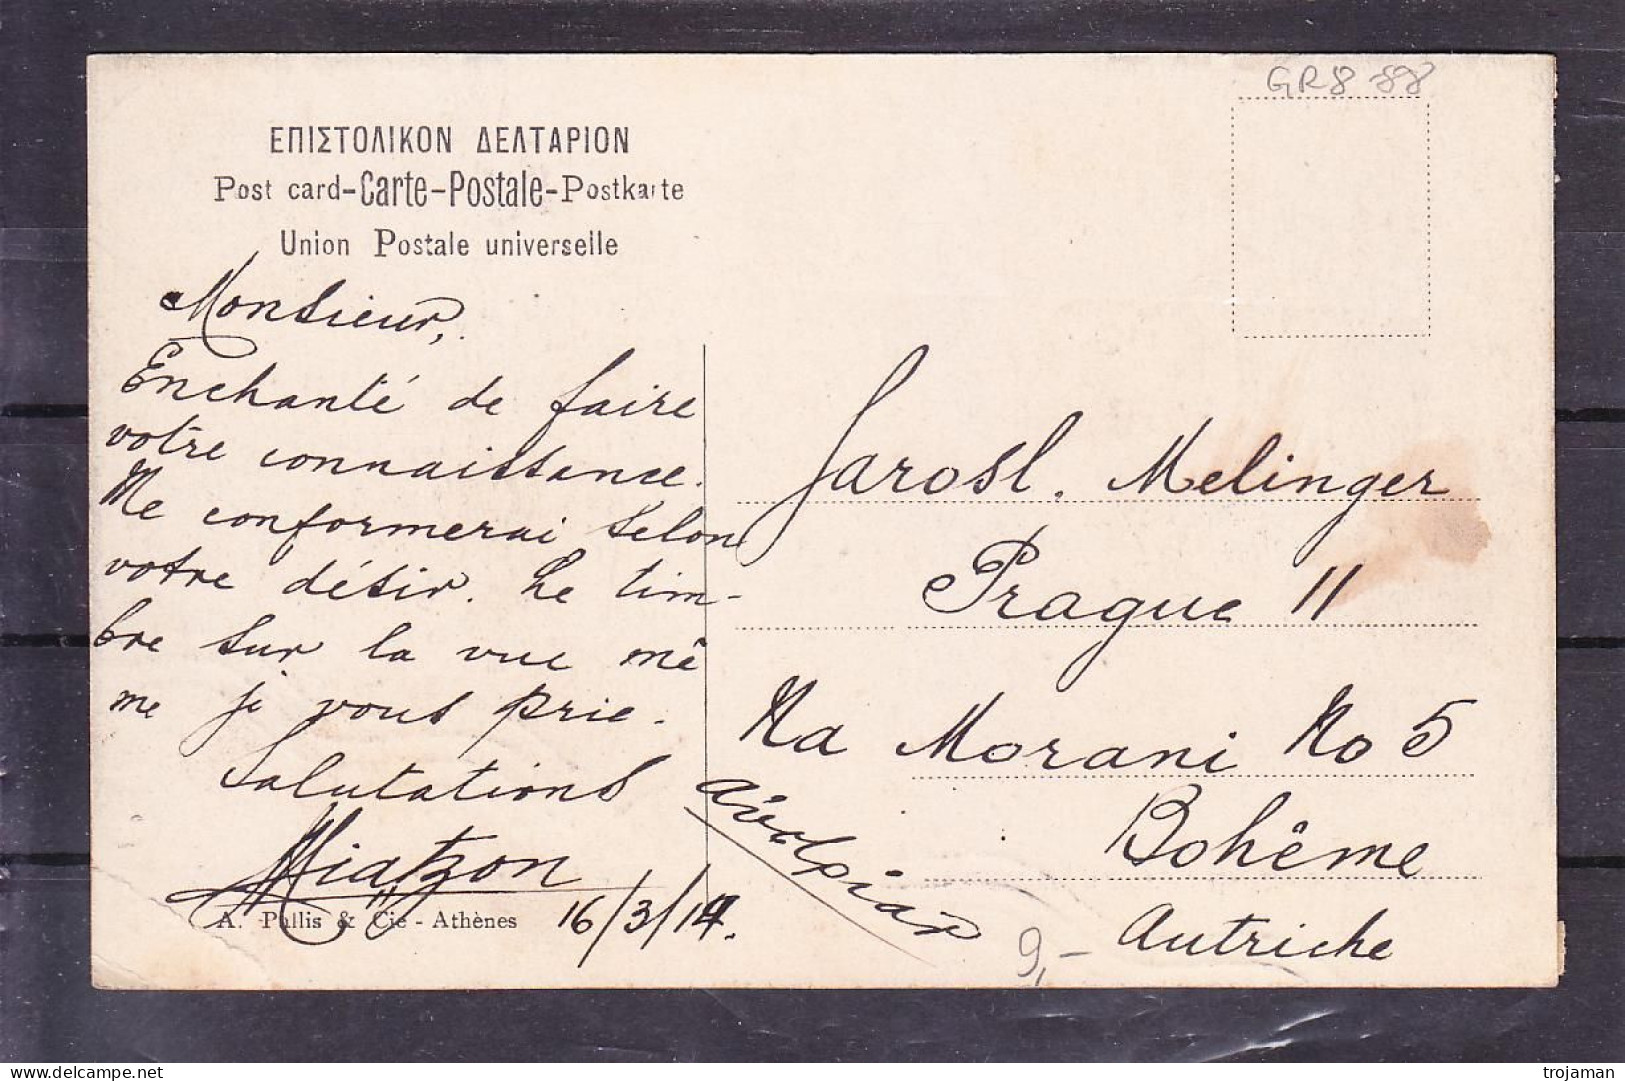 GR8 88
ΕΠΙΣΤΟΛΙΚΟΝ ΔΕΛΤΑΡΙΟΝ
Post card-Carte-Postale-Postkarte
Union Postale universelle
Monsieur,
Enchanté de faire
votre connaissance.
Me conformerai selon
votre désir. Le tim-
bre sur la vue mê
me je vous prie.
Salutations
16/3/14.
A. Pallis & Cie - Athènes
Jarosl. Melinger
Prague II
Na Morani No 5
Bohême
Autriche
9,-
trojaman